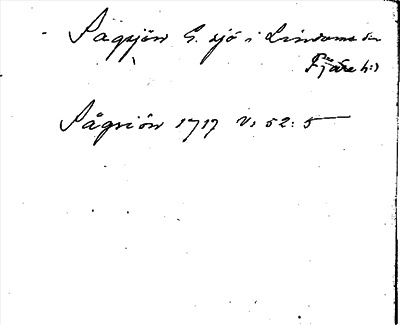 Sågsjön G. sjö i Lindome sn
Fjäre h:d
Sågsiön 1717 V: 52: 5